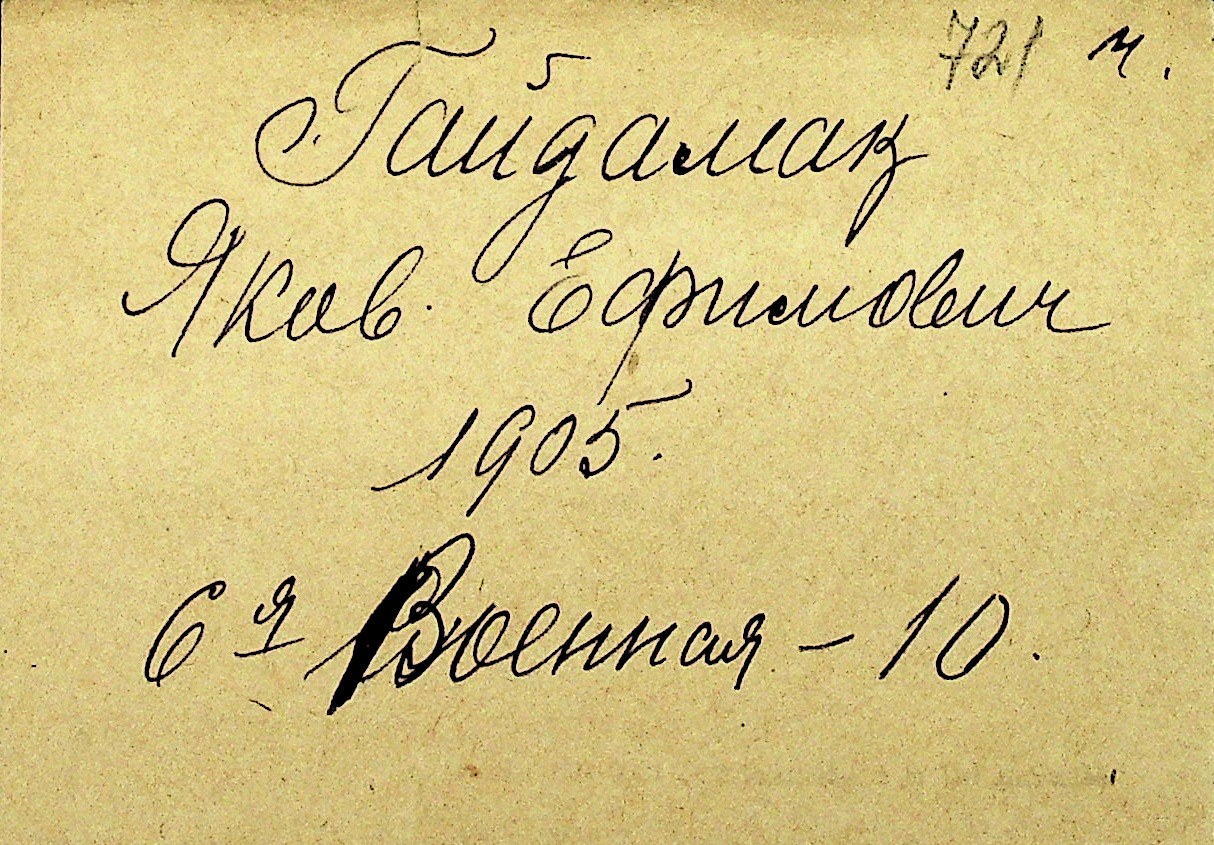 721 м.
Гайдамак
Яков. Ефимович
1905.
6я Военная - 10.